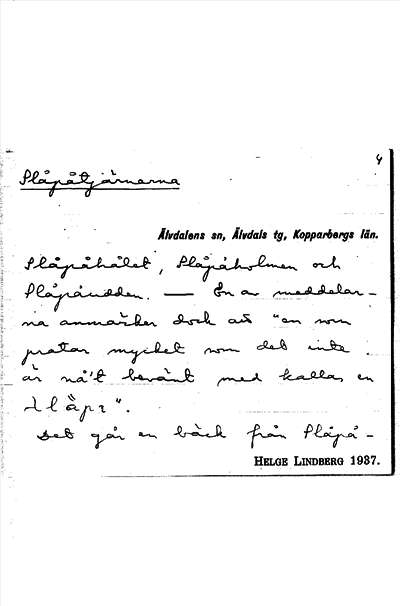 4
Slåpåtjärnarna
Älvdalens sn, Älvdals tg, Kopparbergs län.
Slåpåhålet, Slåpåholmen och
Slåpåudden. — En av meddelar-
na anmärker dock att "en som
pratar mycket som det inte
är nå't bevänt med kallas en
slåpr".
Det går en bäck från Slåpå-
HELGE LINDBERG 1937.